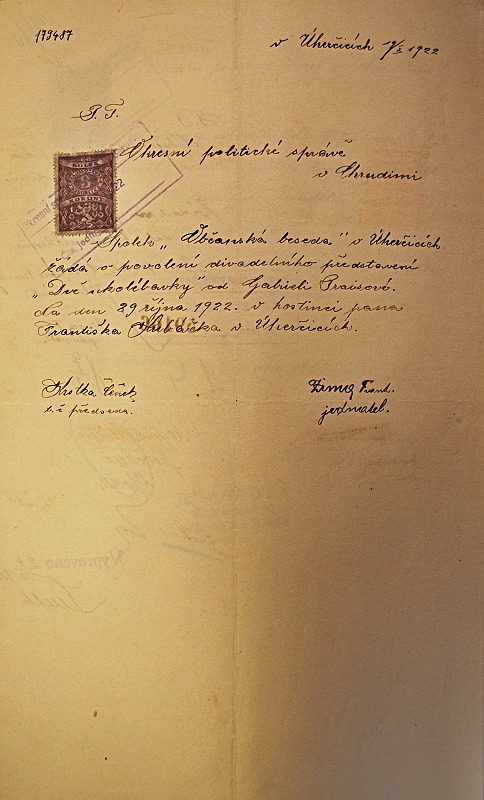 179487
v Úherčicích 19/X 1922
P. T.
Okresní politické správě
v Chrudimi
Spolek „Občanská beseda" v Úherčicích
žádá o povolení divadelního představení
„Dvě ukolébavky" od Gabrieli Praisové.
Na den 29 října 1922. v hostinci pana
Františka v Úherčicích.
Hrstka Čeněk
t. č. předseda.
Frant.
jednatel.